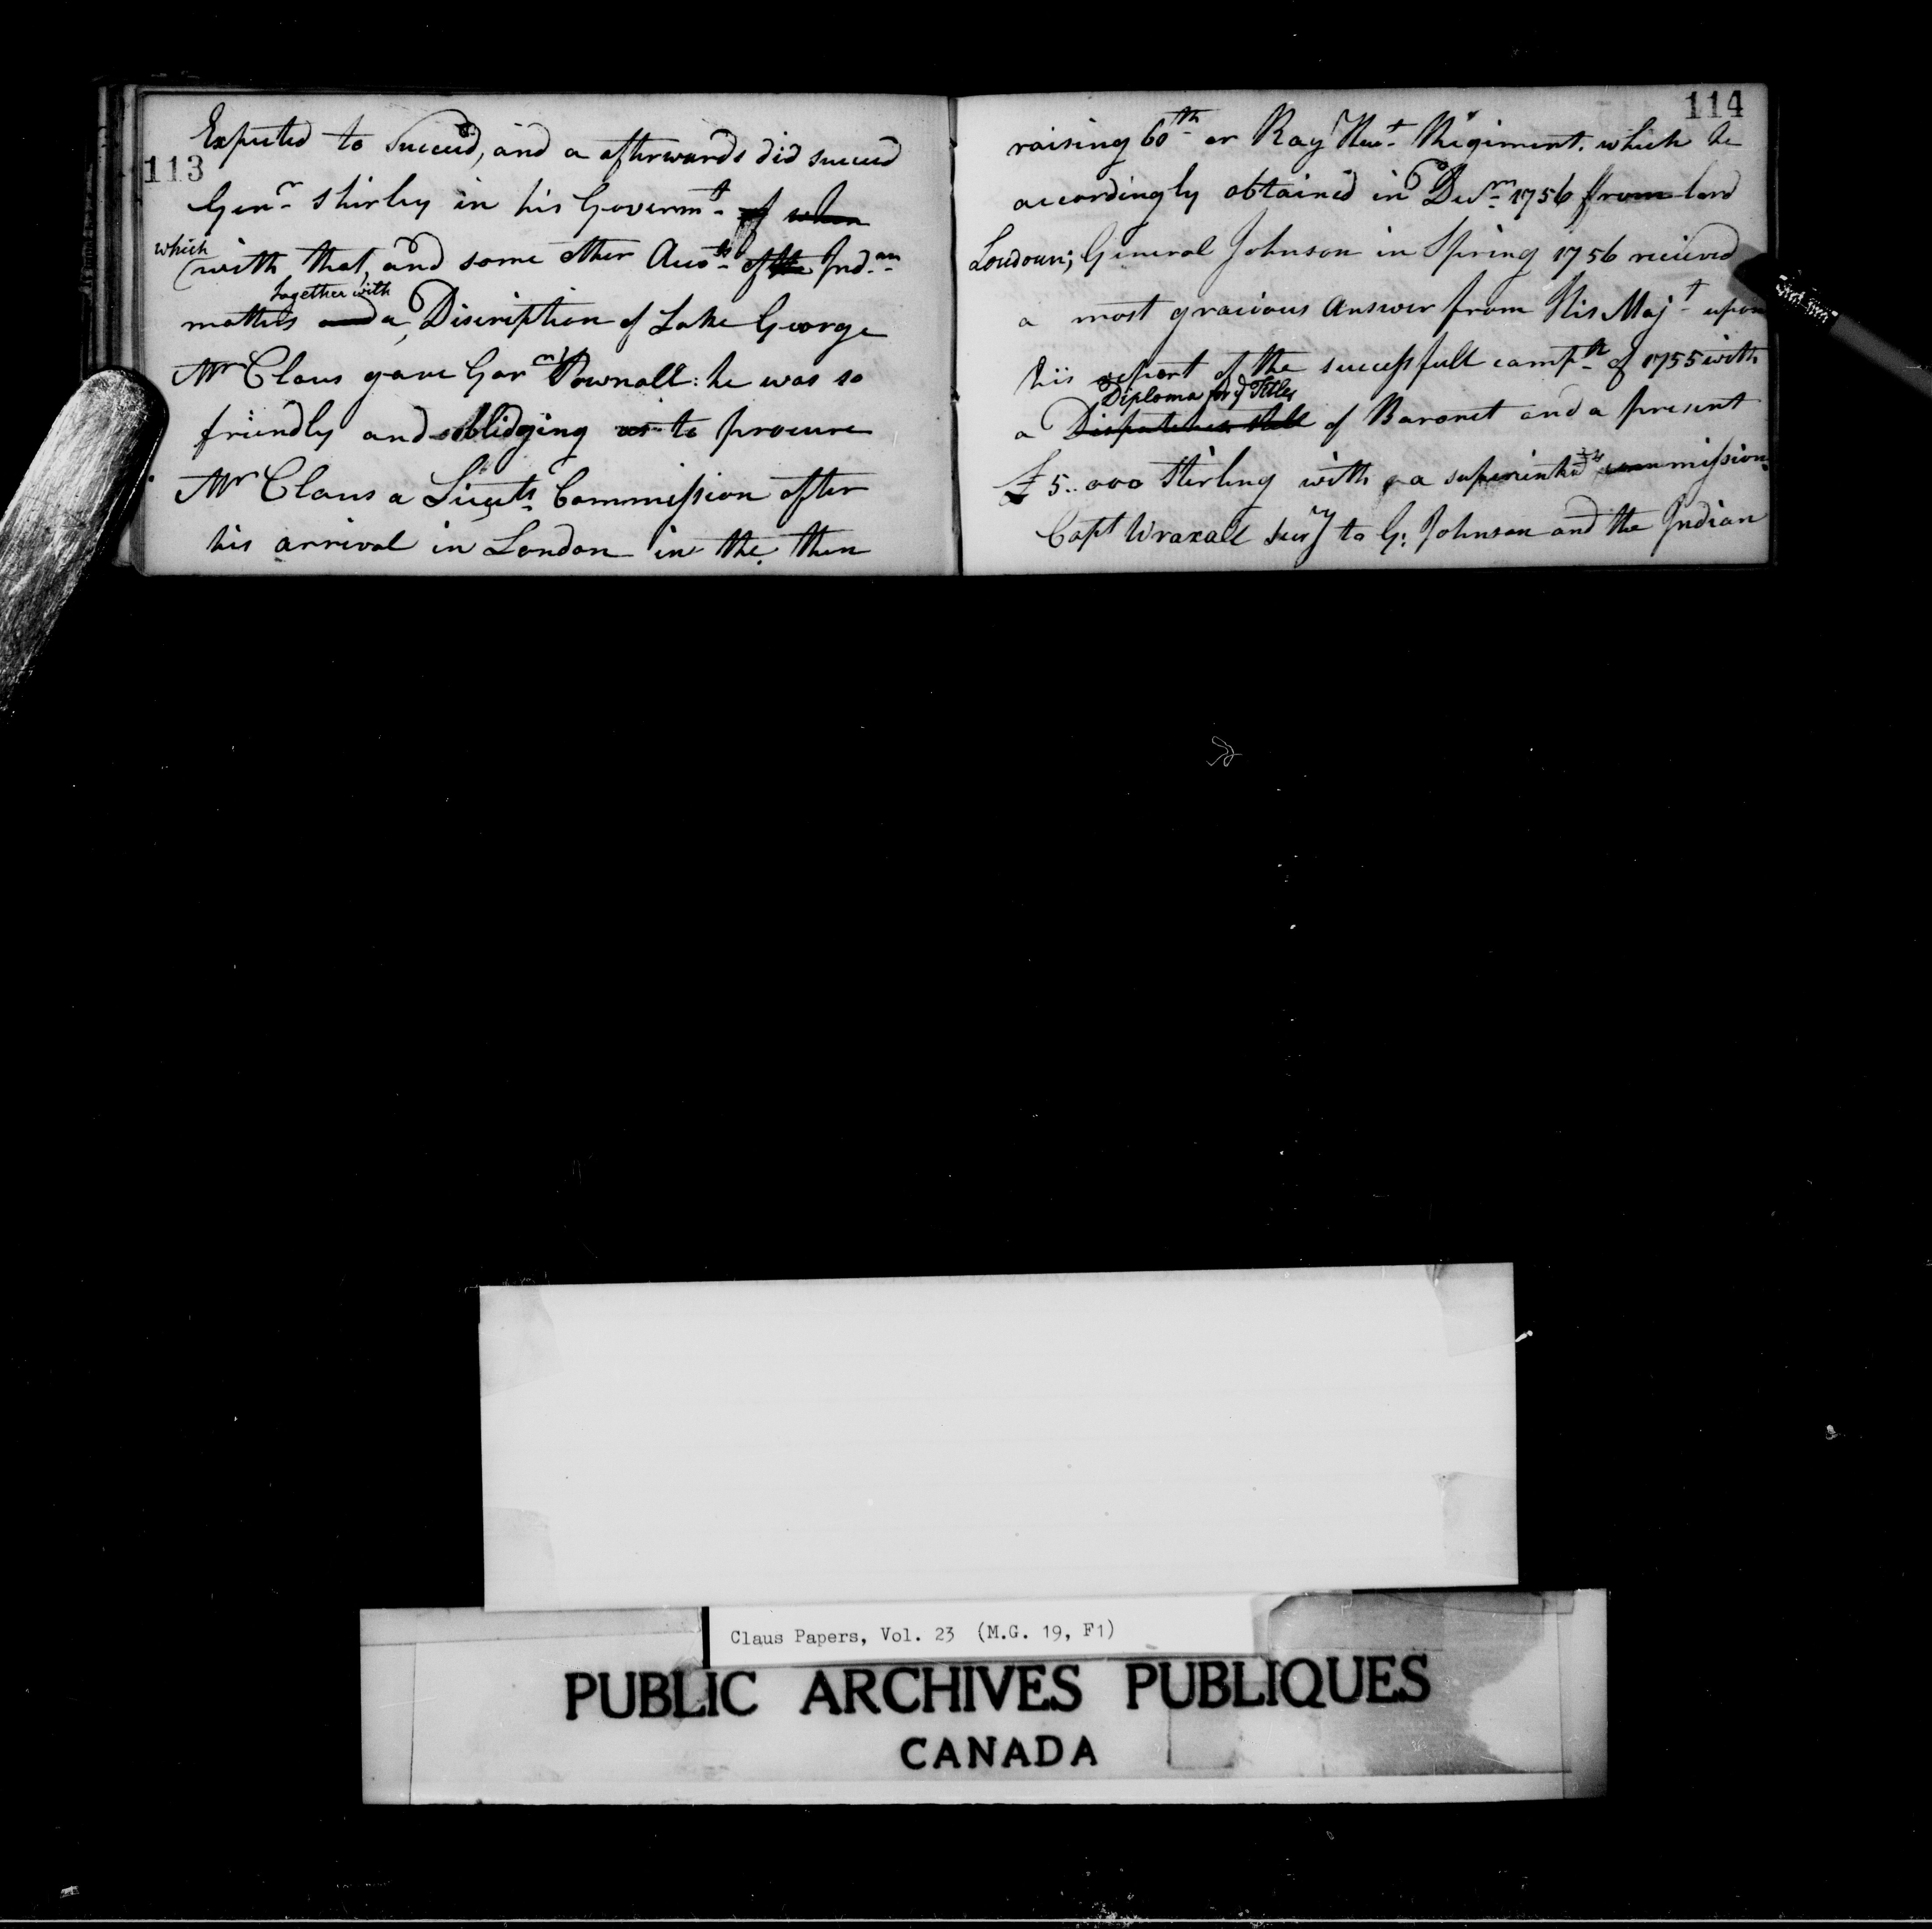 113
Expected to Succeed, and a afterwards did succeed
Genr Shirley in his Governmt of whom
which
(with that, and some other Accts of the Indan
together with
matters and a, Discription of Lake George
Mr Claus gave Govr Pownall: he was so
friendly and oblidging as to procure
Mr Claus a Lieuts Commission after
his arrival in London in the then
114
raising 60th or Roy Regiment. which he
accordingly obtained in Decm 1756 from lord
Loudoun; General Johnson in Spring 1756 recieved
a most gracious Answer from His Majt upon
his report of the successfull campn of 1755 with
Diploma for ye Title
a Dispatches of Baronet and a present
£ 5..000 Sterling with a commission
Capt Wraxall Secry to G: Johnson and the Indian
Claus Papers, Vol. 23 (M.G. 19, F1)
PUBLIC ARCHIVES PUBLIQUES
CANADA